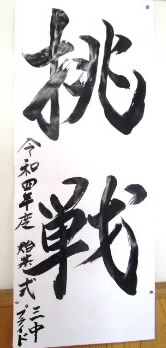 挑戦
令和四年度 始業式
三中
プライド